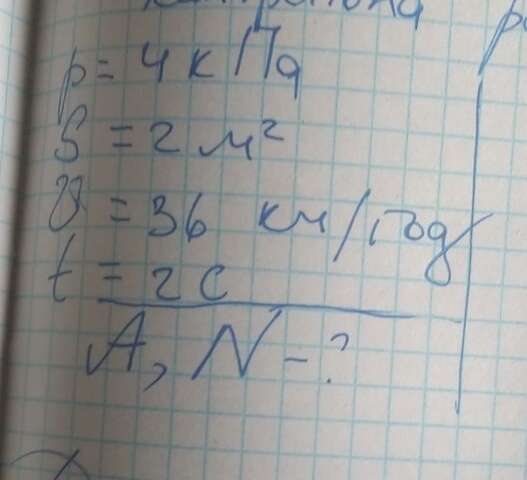 p = 4 кПа
S = 2 м²
υ = 36 км/год
t = 2 с
A, N - ?